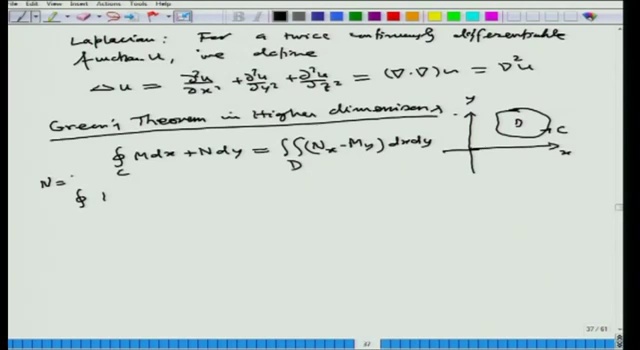 File Edit View Insert Actions Tools Help
Laplacian: For a twice continuously differentiable
function u, we define
Δu = ∂²u/∂x² + ∂²u/∂y² + ∂²u/∂z² = (∇·∇)u = ∇²u
Green's Theorem in Higher dimensions
∮_C Mdx + Ndy = ∬_D (N_x - M_y) dxdy
y
D
C
x
N =
∮
37 / 61
37